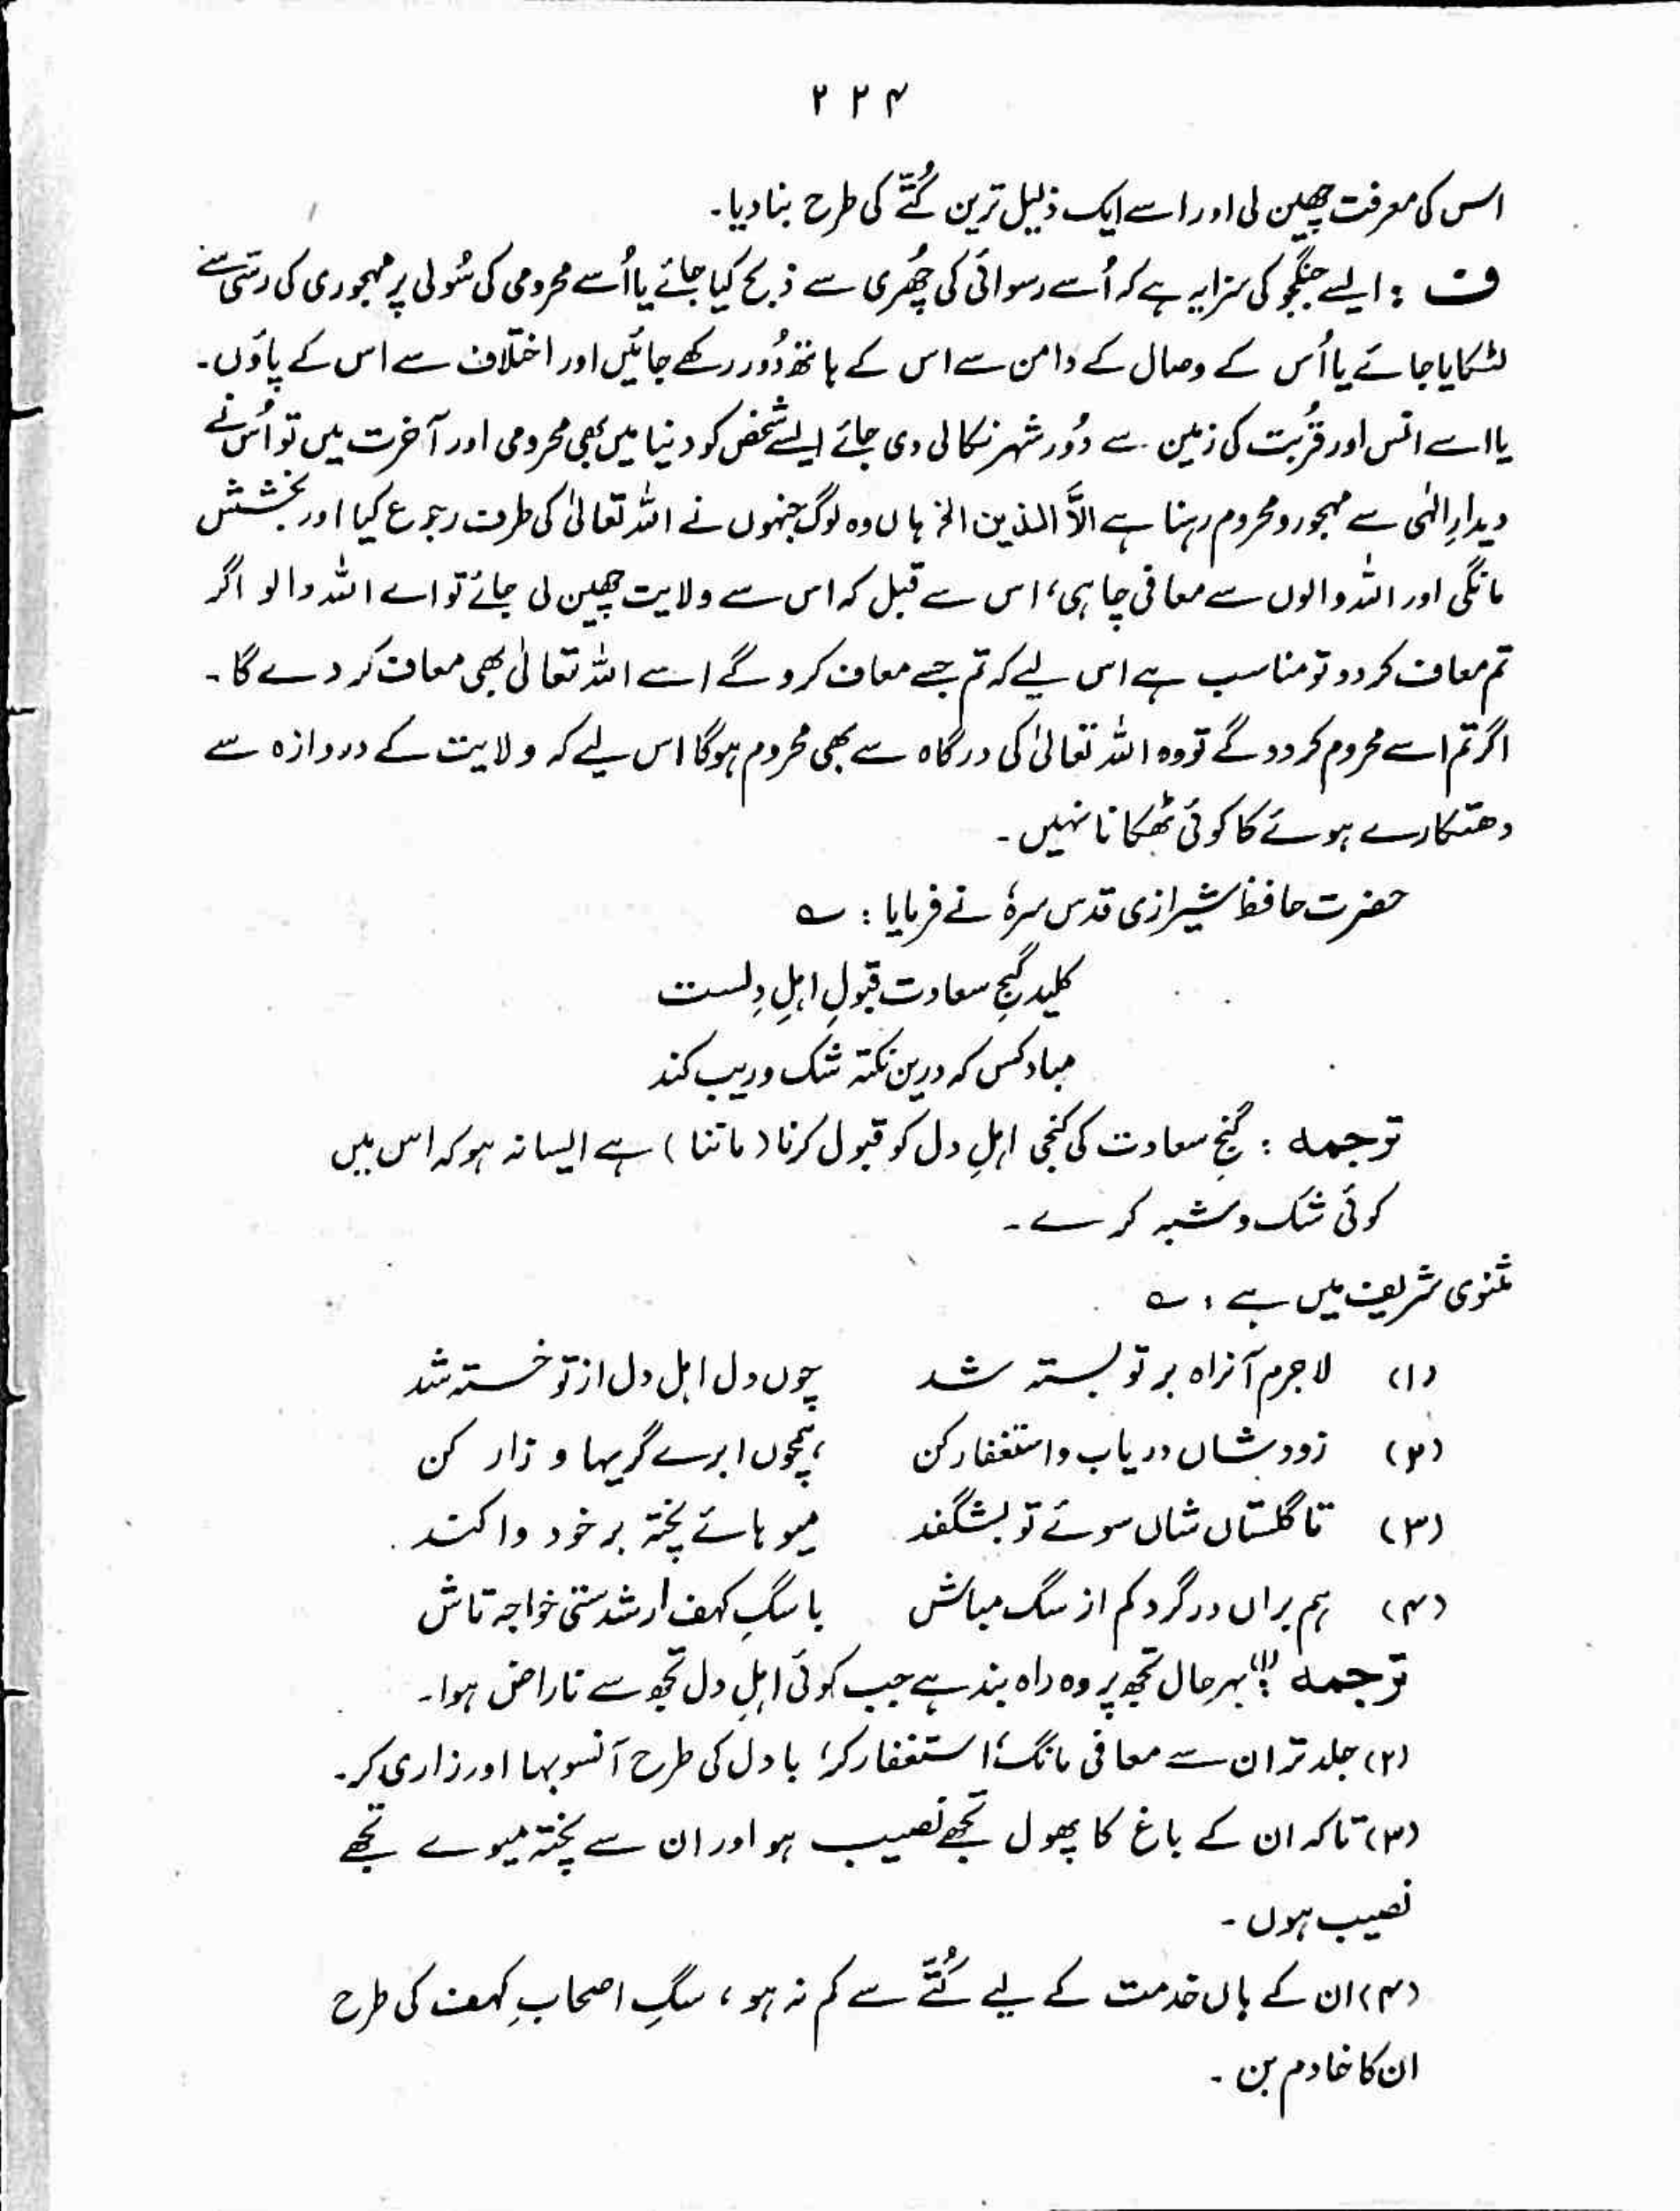 ۲۲۴
اس کی معرفت چھین لی اور اسے ایک ذلیل ترین کُتّے کی طرح بنا دیا۔
ف : ایسے جنگجو کی سزا یہ ہے کہ اُسے رسوائی کی چھُری سے ذبح کیا جائے یا اُسے محرومی کی سُولی پر مہجوری کی رسّی سے
لٹکایا جائے یا اُس کے وصال کے دامن سے اس کے ہاتھ دُور رکھے جائیں اور اختلاف سے اس کے پاؤں۔
یا اسے انس اور قُربت کی زمین سے دُور شہر نکالی دی جائے ایسے شخص کو دنیا میں بھی محرومی اور آخرت میں تو اُس نے
دیدارِ الٰہی سے مہجور و محروم رہنا ہے الاَّ الذین الخ ہاں وہ لوگ جنہوں نے اللہ تعالیٰ کی طرف رجوع کیا اور بخشش
مانگی اور اللہ والوں سے معافی چاہی، اس سے قبل کہ اس سے ولایت چھین لی جائے تو اے اللہ والو اگر
تم معاف کر دو تو مناسب ہے اس لیے کہ تم جسے معاف کرو گے اسے اللہ تعالیٰ بھی معاف کر دے گا۔
اگر تم اسے محروم کر دو گے تو وہ اللہ تعالیٰ کی درگاہ سے بھی محروم ہوگا اس لیے کہ ولایت کے دروازہ سے
دھتکارے ہوئے کا کوئی ٹھکانا نہیں۔
حضرت حافظ شیرازی قدس سرہٗ نے فرمایا : ؎
کلید گنجِ سعادت قبولِ اہلِ دِلست
مباد کس کہ درین نکتہ شک و ریب کند
ترجمہ : گنجِ سعادت کی کنجی اہلِ دل کو قبول کرنا (ماننا) ہے ایسا نہ ہو کہ اس میں
کوئی شک و شبہ کرے۔
مثنوی شریف میں ہے : ؎
(۱) لا جرم آنراہ بر تو بستہ شد چوں دل اہل دل از تو خستہ شد
(۲) زود شاں دریاب و استغفار کن ہمچوں ابرے گریہا و زار کن
(۳) تا گلستاں شاں سوئے تو بشگفد میو ہائے پختہ بر خود وا کند
(۴) ہم براں در گرد کم از سگ مباش با سگِ کہف ار شدستی خواجہ تاش
ترجمہ : (۱) بہرحال تجھ پر وہ راہ بند ہے جب کوئی اہلِ دل تجھ سے ناراض ہوا۔
(۲) جلد تر ان سے معافی مانگ، استغفار کر، بادل کی طرح آنسو بہا اور زاری کر۔
(۳) تاکہ ان کے باغ کا پھول تجھے نصیب ہو اور ان سے پختہ میوے تجھے
نصیب ہوں۔
(۴) ان کے ہاں خدمت کے لیے کُتّے سے کم نہ ہو، سگِ اصحابِ کہف کی طرح
ان کا خادم بن۔